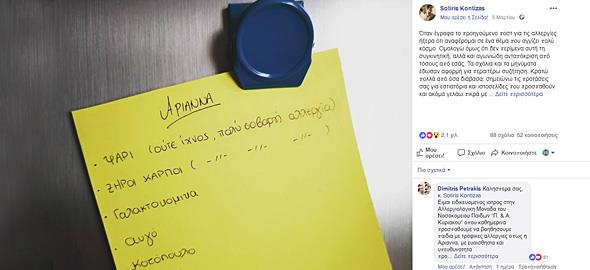 ΑΡΙΑΝΝΑ
· ΨΑΡΙ (ούτε ίχνος, πολύ σοβαρή αλλεργία)
· ΞΗΡΟΙ ΚΑΡΠΟΙ ( -"- -"- -"- )
· Γαλακτοκομικά
· αυγό
Κοτόπουλο
Sotiris Kontizas
Μου αρέσει η Σελίδα! · 5 Μαρτίου ·
Όταν έγραφα το προηγούμενο ποστ για τις αλλεργίες
ήξερα ότι αναφέρομαι σε ένα θέμα που αγγίζει πολύ
κόσμο. Ομολογώ όμως ότι δεν περίμενα αυτή τη
συγκινητική, αλλά και αγωνιώδη ανταπόκριση από
τόσους από εσάς. Τα σχόλια και τα μηνύματα
έδωσαν αφορμή για περαιτέρω συζήτηση. Κρατώ
πολλά από όσα διάβασα: σημειώνω τις προτάσεις
σας για εστιατόρια και ιστοσελίδες που προσπαθούν
και ακόμα γελάω πικρά με ... Δείτε περισσότερα
2,1 χιλ.
88 σχόλια 52 κοινοποιήσεις
Μου αρέσει!
Σχόλιο
Κοινοποιήστε
Πιο σχετικά
Dimitris Petrakis Καλησπερα σας,
κ. Sotiris Kontizas
Ειμαι ειδικευομενος ιατρος στην
Αλλεργιολογικη Μοναδα του
Νοσοκομειου Παιδων "Π. & Α.
Κυριακου" οπου καθημερινα
προσπαθουμε να βοηθησουμε
παιδια με τροφικες αλλεργιες οπως η
Αριαννα, με ευαισθησια και
υπευθυνοτητα
προ... Δείτε περισσότερα
81
Μου αρέσει! · Απάντηση · 1 ημέρα · Τροποποιήθηκε